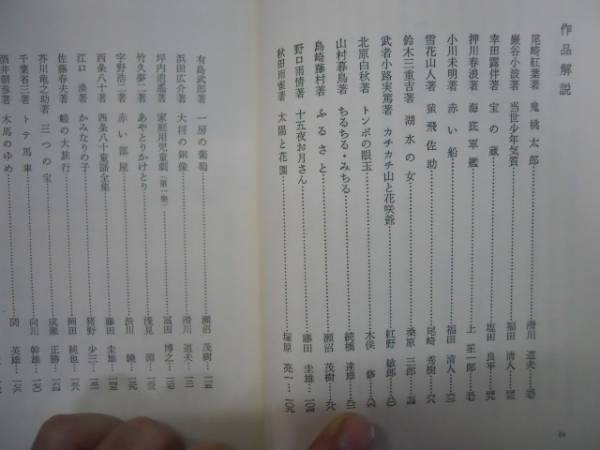 作品解説
尾崎紅葉著 鬼桃太郎 滑川 道夫
巌谷小波著 当世少年気質 福田 清人
幸田露伴著 宝の蔵 塩田 良平
押川春浪著 海底軍艦 上 笙一郎
小川未明著 赤い船 福田 清人
雪花山人著 猿飛佐助 尾崎 秀樹
鈴木三重吉著 湖水の女 桑原 三郎
武者小路実篤著 カチカチ山と花咲爺 紅野 敏郎
北原白秋著 トンボの眼玉 木俣 修
山村暮鳥著 ちるちる・みちる 続橋 達雄
島崎藤村著 ふるさと 瀬沼 茂樹
野口雨情著 十五夜お月さん 藤田 圭雄
秋田雨雀著 太陽と花園 塚原 亮一
有島武郎著 一房の葡萄 瀬沼 茂樹
浜田広介著 大将の銅像 滑川 道夫
坪内逍遥著 家庭用児童劇(第一集) 冨田 博之
竹久夢二著 あやとりかけとり 浅見 淵
宇野浩二著 赤い部屋 渋川 驍
西条八十著 西条八十童話全集 藤田 圭雄
江口 渙著 かみなりの子 猪野 少三
佐藤春夫著 蝗の大旅行 岡田 純也
芥川竜之助著 三つの宝 成瀬 正勝
千葉省三著 トテ馬車 向川 幹雄
酒井朝彦著 木馬のゆめ 関 英雄